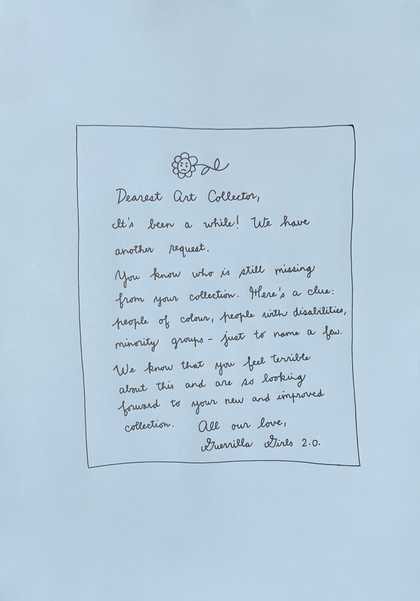 Dearest Art Collector,
It's been a while! We have
another request.
You know who is still missing
from your collection. Here's a clue:
people of colour, people with disabilities,
minority groups - just to name a few.
We know that you feel terrible
about this and are so looking
forward to your new and improved
collection. All our love,
Guerrilla Girls 2.0.